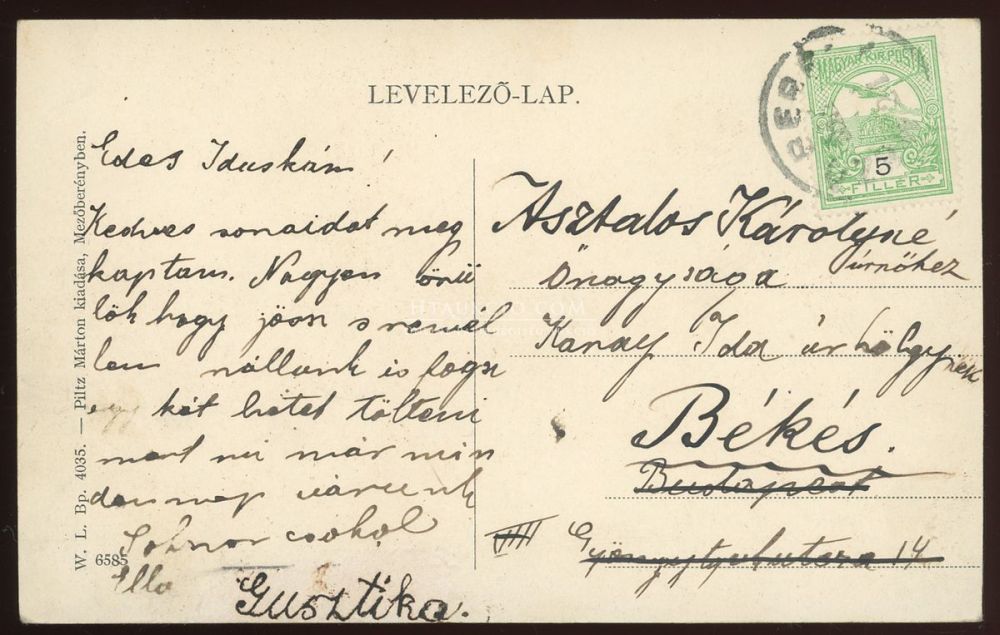 LEVELEZŐ-LAP.
MAGYAR KIR. POSTA
5
FILLÉR
BERÉ
W. L. Bp. 4035. — Piltz Márton kiadása, Mezőberényben.
6585
Edes Iduskám!
Kedves soraidat meg
kaptam. Nagyon örü
lök hogy jösz s remél
lem nállunk is fogsz
egy két hetet tölteni
mert mi már min
dennap várunk
csokol
Ella
Gusztika.
Asztalos Károlyné
úrnőhez
Őnagysága
Kanay Ida úrhölgynek
Békés.
Budapest
VIII
Gyöngytyuk utcza 14
HTAUKCIO.COM